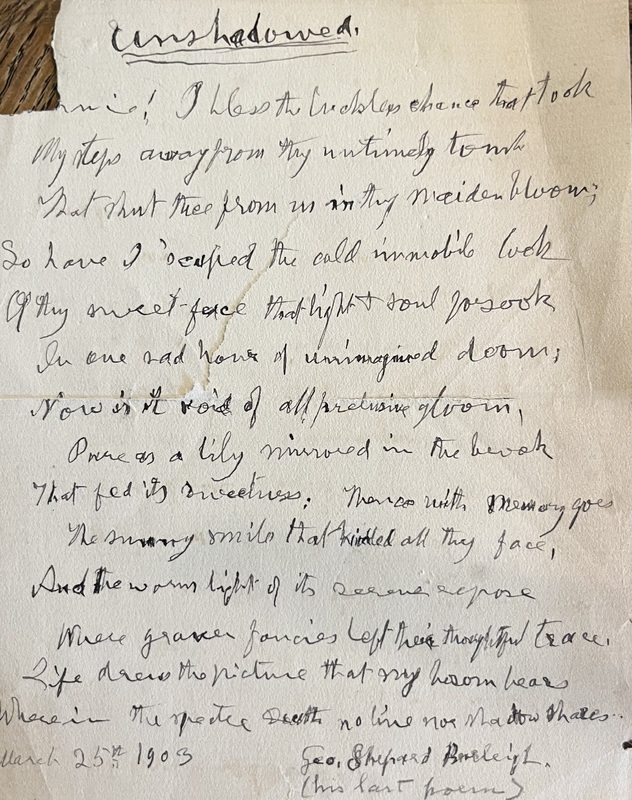 Unshadowed.
I bless the luckless chance that took
My steps away from thy untimely tomb
That shut thee from us in thy maiden bloom;
So have I 'scaped the cold immobile look
Of thy sweet face that light & soul forsook
In one sad hour of unimagined doom;
Now is it void of all preclusive gloom,
Pure as a lily mirrored in the brook
That fed its sweetness; Thence with memory goes
The sunny smile that kindled all thy face,
And the warm light of its serene repose
Where graver fancies left their thoughtful trace.
Life drew the picture that my bosom bears
Wherein the spectre Death no line nor shadow shares..
March 25th 1903
Geo. Shepard Burleigh.
(his last poem)